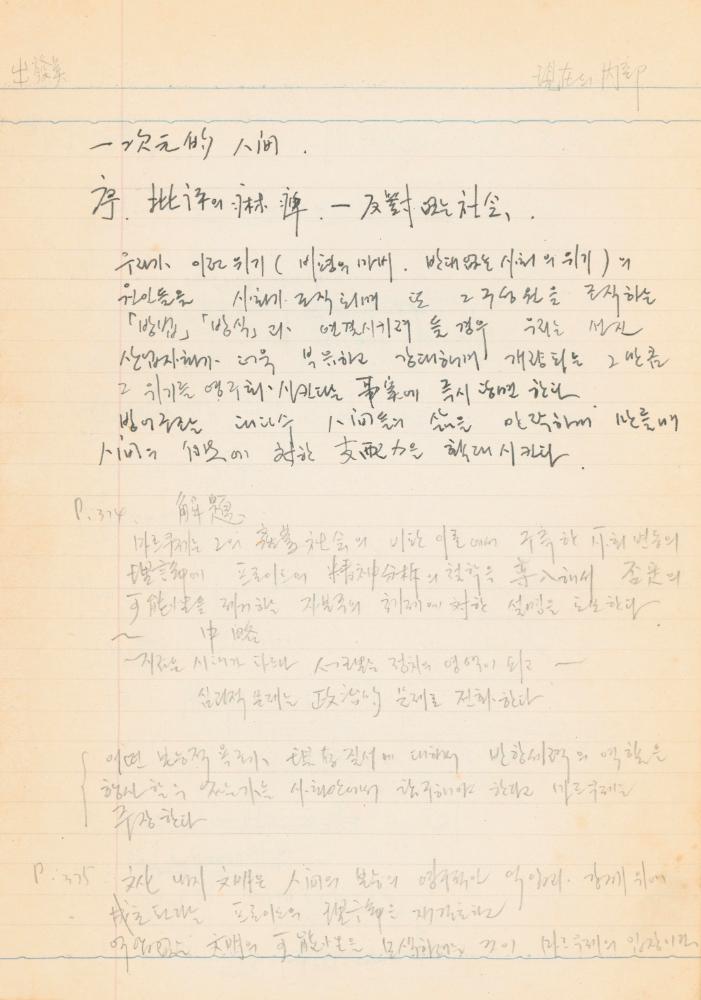 出發点
現在의 內部
一次元的 人间.
序. 批评의 痲痺. — 反對없는 社会.
우리가 이런 위기 ( 비평의 마비. 반대없는 사회의 위기 ) 의
원인들을 사회가 조직되며 또 그 구성원을 조직하는
「방법」「방식」과 연결시키려 들 경우 우리는 선진
산업사회가 더욱 부유하고 강대하게 개량되는 그만큼
그 위기를 영구화 시킨다는 事実에 즉시 당면한다
방어구조는 대다수 人间들의 삶을 안락하게 만들며
人间의 自然에 対한 支配力을 확대시킨다
P. 374. 解題
마르쿠제는 그의 사회변동의
理論에 프로이드의 精神分析의 철학을 導入해서 否定의
可能性을 제거하는 자본주의 체제에 対한 설명을 한다
~ 中略
~지금은 시대가 다르다 정치의 영역이 되고 —
심리적 문제는 政治的 문제로 전화한다
어떤 본능적 욕구가 現存질서에 대해서 반항세력의 역할을
행사할 수 있는가는 사회안에서 한다고 마르쿠제는
주장한다
P. 375 文化 내지 文明은 人间의 본능의 영구적인 억압과 위에
成立된다는 프로이드의 理論을 재검토하고
억압없는 文明의 可能性을 모색하려는 것이 마르쿠제의 입장이다